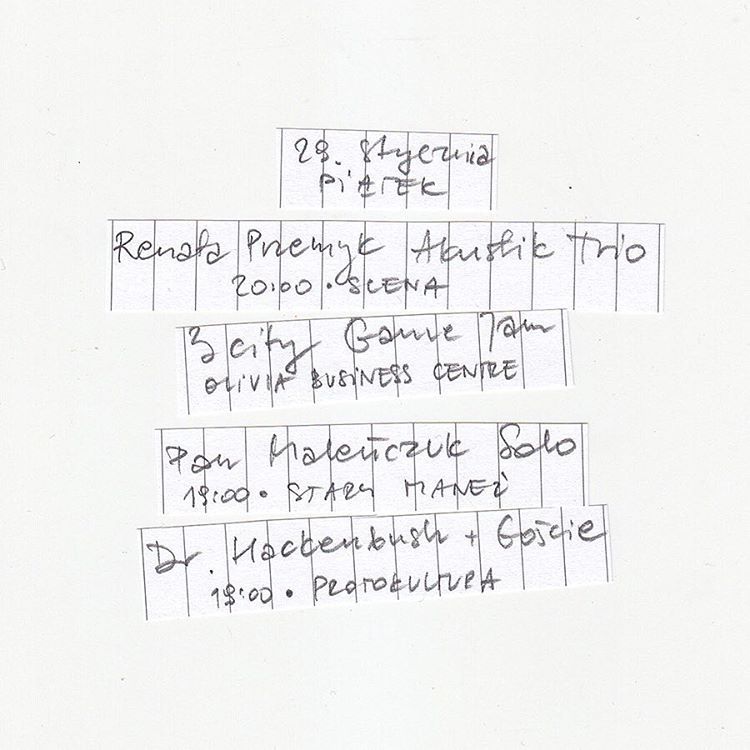 29. stycznia
PIĄTEK
Renata Przemyk Akustik Trio
20:00 • SCENA
3city Game Jam
OLIVIA BUSINESS CENTRE
Pan Maleńczuk Solo
19:00 • STARY MANEŻ
Dr. Hackenbush + Goście
19:00 • PROTOKULTURA